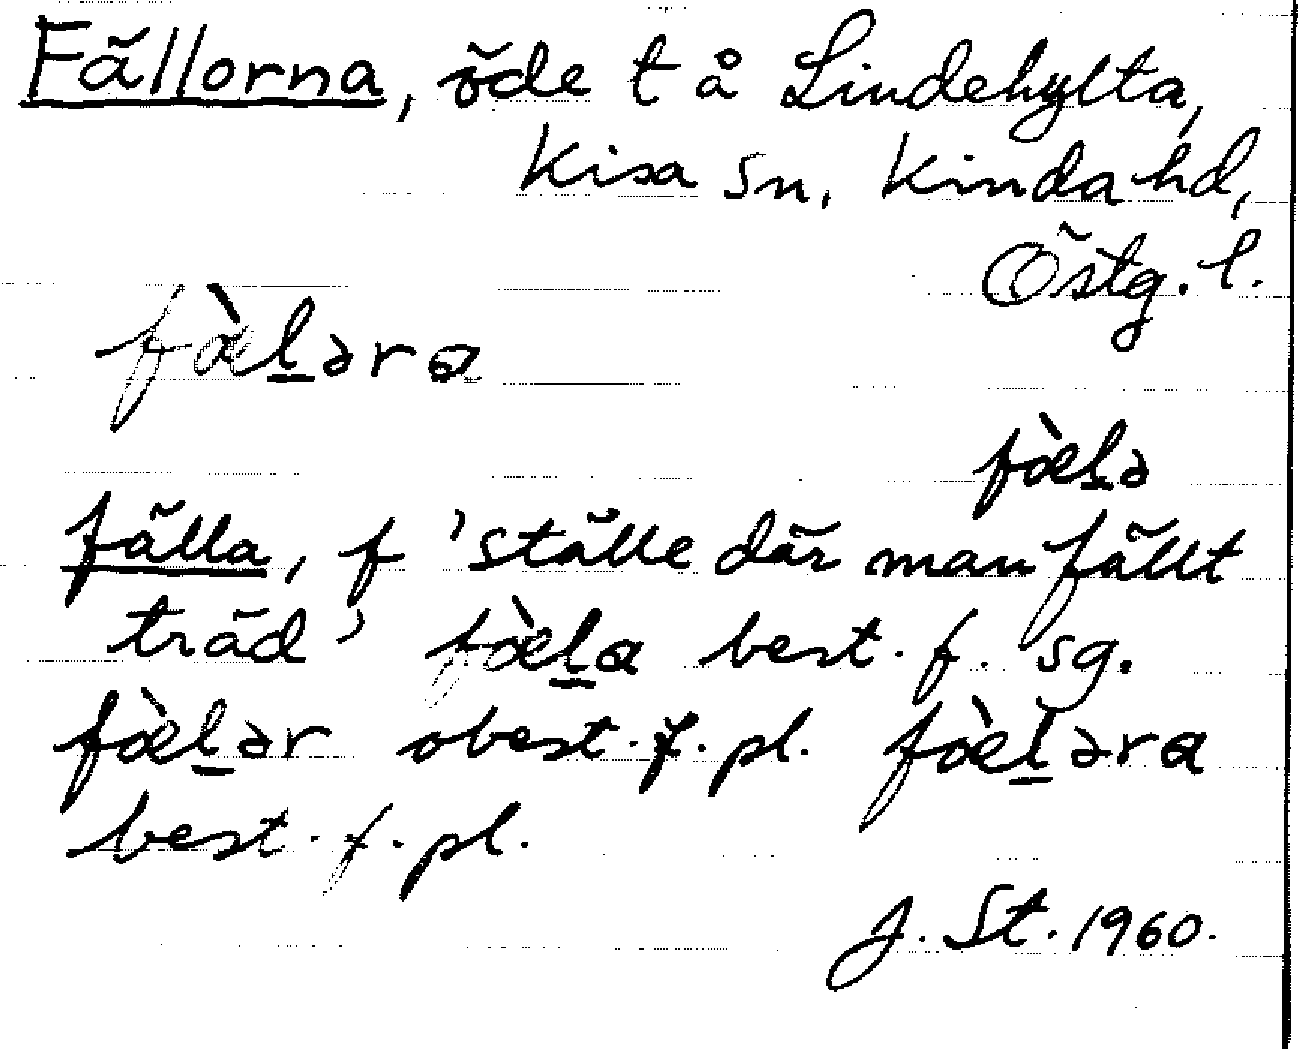 Fällorna, öde t å Lindehylta,
Kisa sn, Kinda hd,
Östg. l.
fæ̀l̲əra
fæ̀l̲ə
fälla, f 'ställe där man fällt
träd' fæ̀l̲a best. f. sg.
fæ̀l̲ər obest. f. pl. fæ̀l̲əra
best. f. pl.
J. St. 1960.